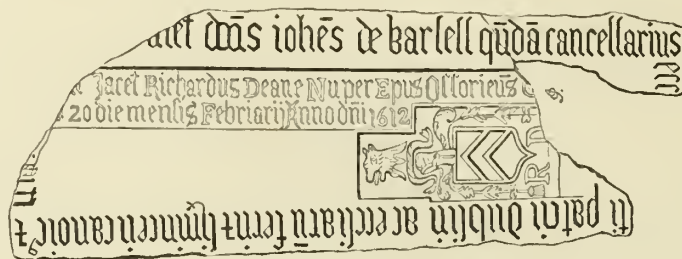 iacet dn̄s ioh̄es de barſell qn̄dā cancellarius
ecc
Jacet Richardus Deane Nuper Epus Oſſorieñs
20 die mensis Febriarij Anno dñi 1612
R D
ti pat̄ici dublin̄ ac eccliarū fern̄ ⁊ lym̄ericen̄ canoic⁹ ⁊